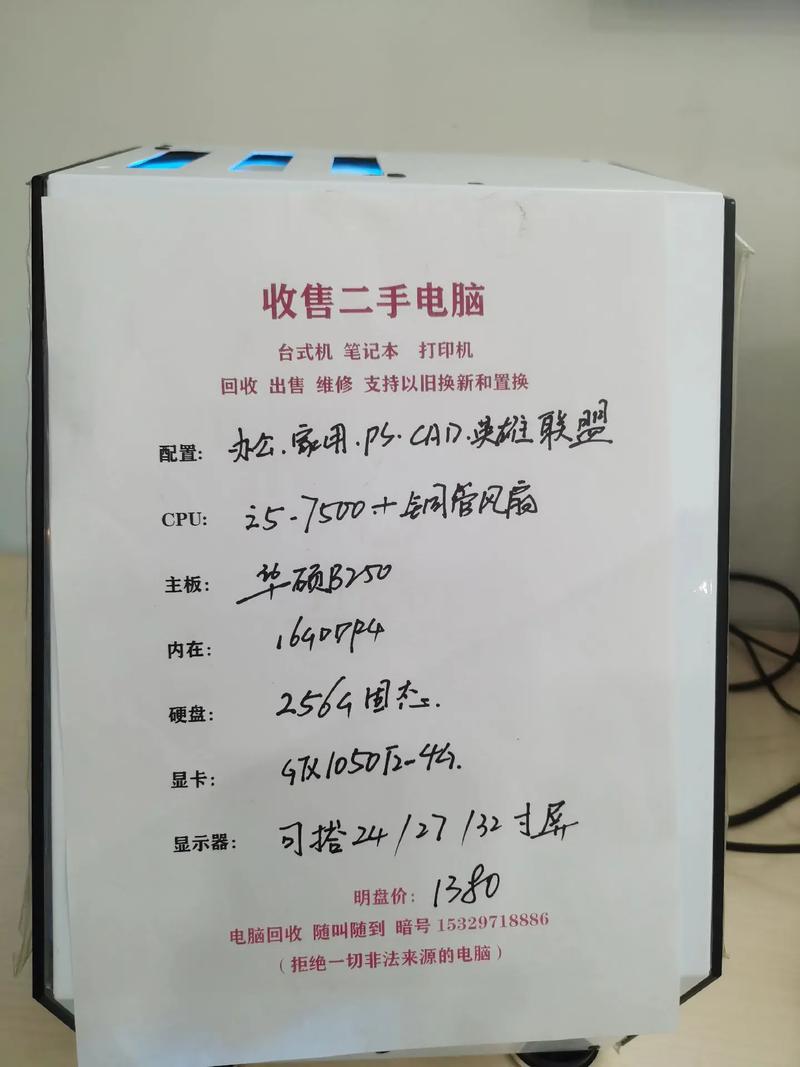 收售二手电脑
台式机 笔记本 打印机
回收 出售 维修 支持以旧换新和置换
配置: 办公.家用.PS.CAD.英雄联盟
CPU: i5-7500+铜管风扇
主板: 华硕B250
内在: 16GDDR4
硬盘: 256G固态.
显卡: GTX1050Ti-4G.
显示器: 可搭24/27/32寸屏
明盘价: 1380
电脑回收 随叫随到 暗号15329718886
(拒绝一切非法来源的电脑)